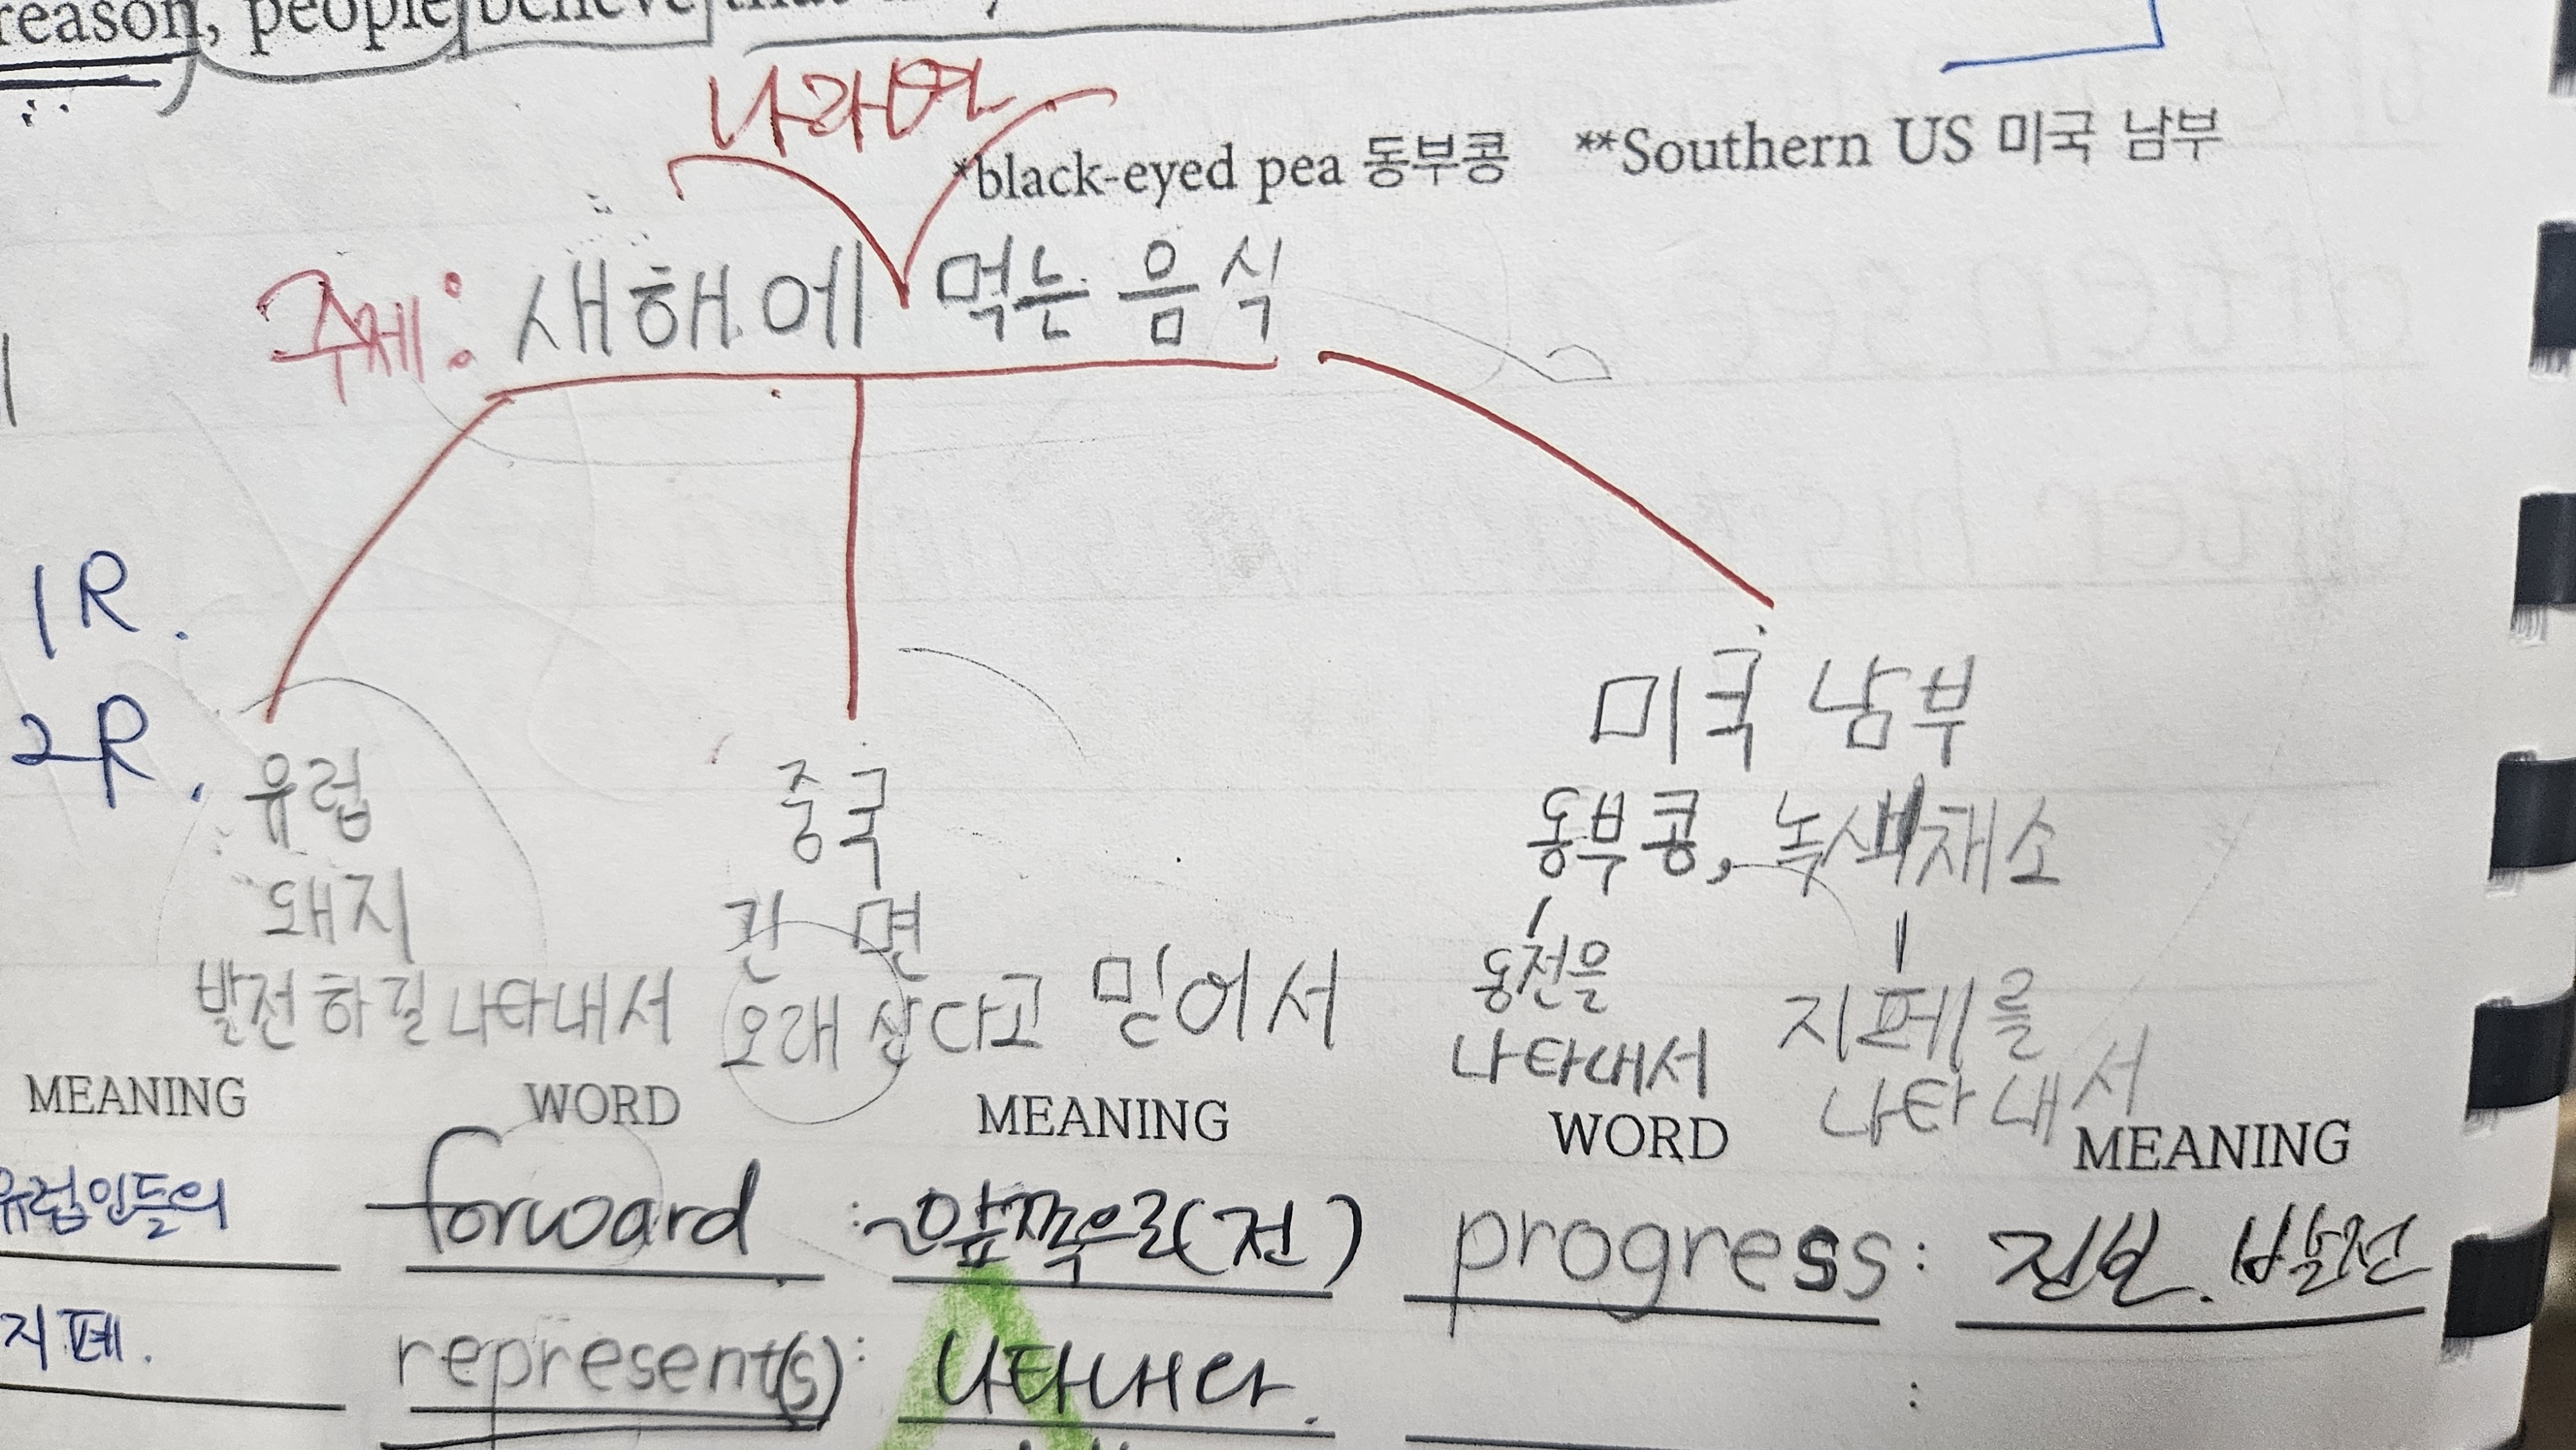 reason, people believe that
나라별
*black-eyed pea 동부콩 **Southern US 미국 남부
주제: 새해에 먹는 음식
1R.
2R.
유럽
돼지
발전하길 나타내서
중국
긴 면
오래 산다고 믿어서
미국 남부
동부콩, 녹색채소
동전을
나타내서
지폐를
나타내서
MEANING WORD MEANING WORD MEANING
유럽인들의 forward : ~앞쪽으로(전) progress : 진보. 발전
지폐. represent(s) : 나타내다. :